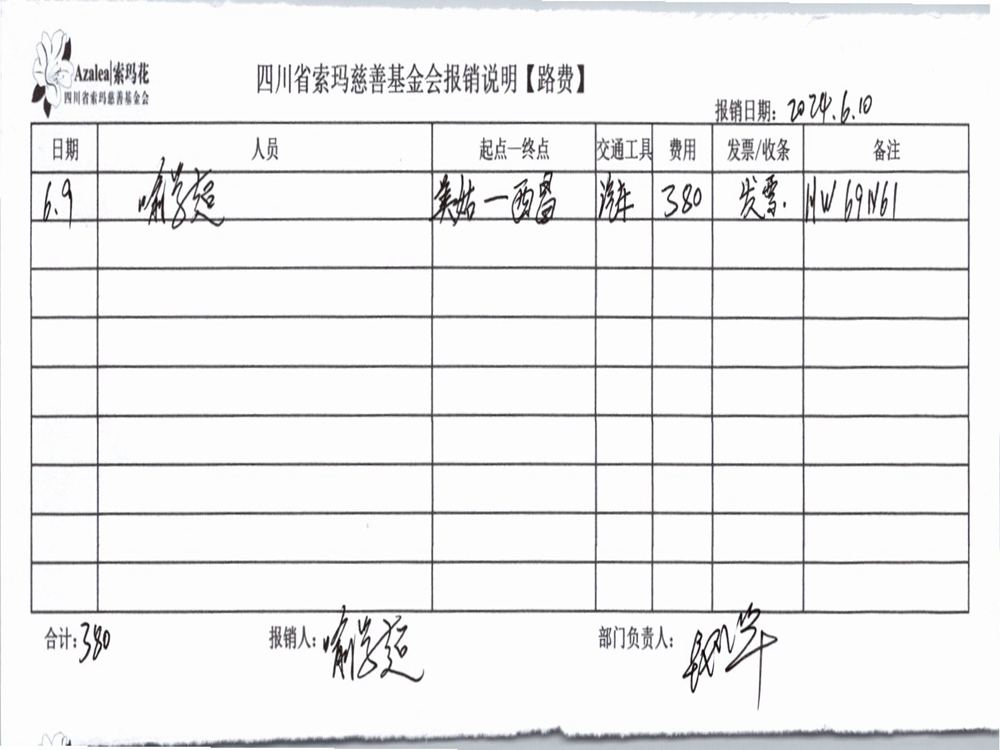 Azalea|索玛花
四川省索玛慈善基金会
四川省索玛慈善基金会报销说明【路费】
报销日期：2024.6.10
日期 人员 起点—终点 交通工具 费用 发票/收条 备注
6.9 喻学超 美姑—西昌 汽车 380 发票. MW69N61
合计：380 报销人：喻学超 部门负责人：